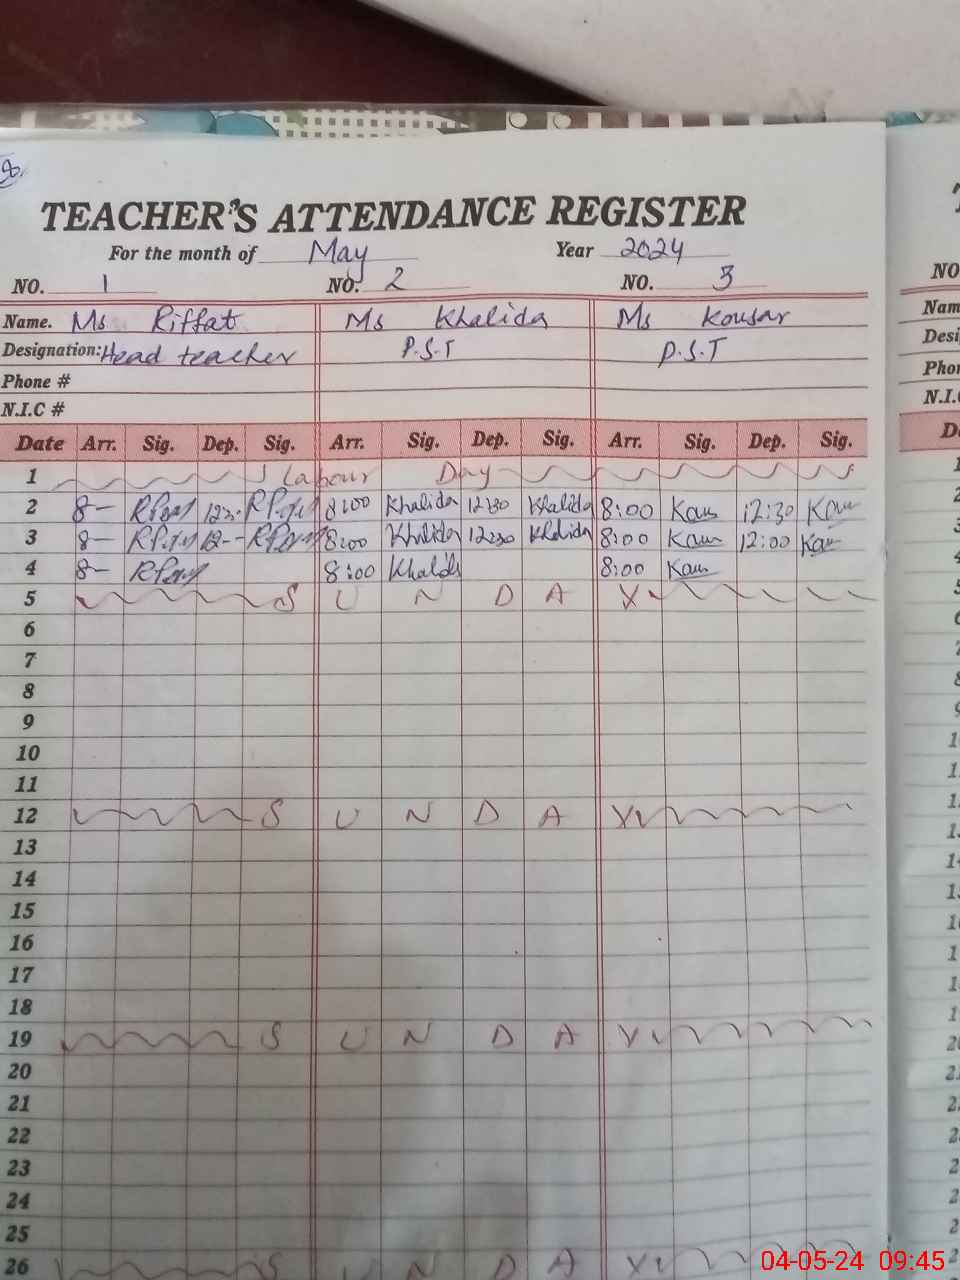 8.
TEACHER'S ATTENDANCE REGISTER
For the month of May Year 2024
NO. 1 NO. 2 NO. 3
Name. Ms Riffat Ms Khalida Ms Kousar
Designation: Head teacher P.S.T P.S.T
Phone #
N.I.C #
Date Arr. Sig. Dep. Sig. Arr. Sig. Dep. Sig. Arr. Sig. Dep. Sig.
1 Labour Day
2 8- 8:00 Khalida 12:30 Khalida 8:00 Kau 12:30 Kau
3 8- 12-- 8:00 Khalida 12:30 Khalida 8:00 Kau 12:00 Kau
4 8- 8:00 Khalida 8:00 Kau
5 S U N D A Y
6
7
8
9
10
11
12 S U N D A Y
13
14
15
16
17
18
19 S U N D A Y
20
21
22
23
24
25
26 S U N D A Y
04-05-24 09:45